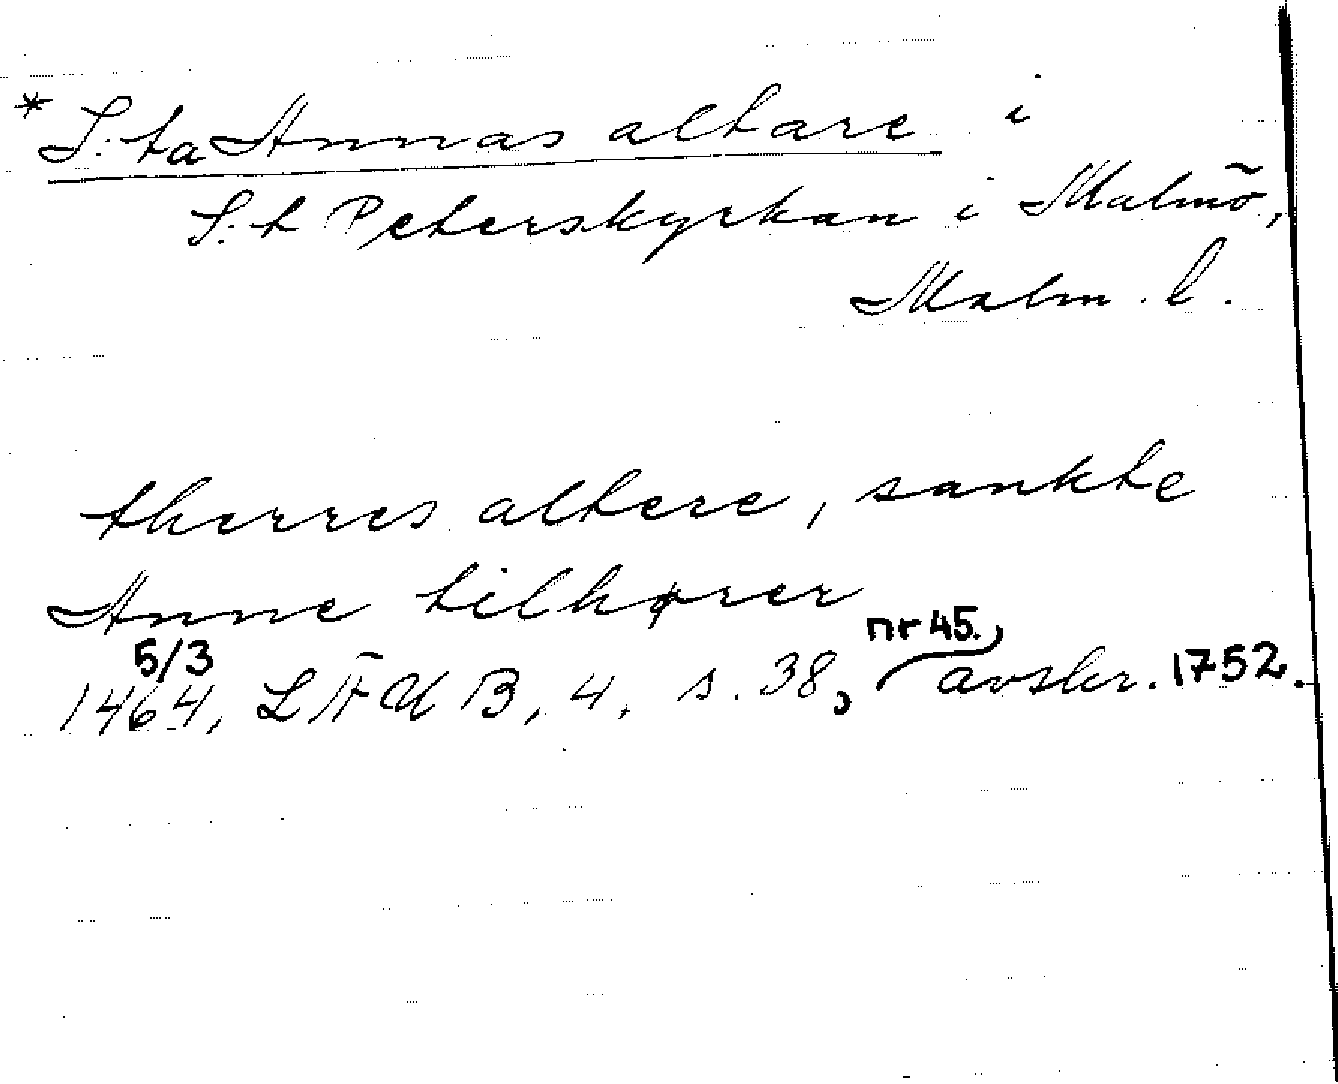 * S:ta Annas altare i
S:t Peterskyrkan i Malmö,
Malm. l.
therres altere, sankte
Anne tilhører
5/3 nr 45.,
1464, LÄUB, 4, s. 38, avskr. 1752.